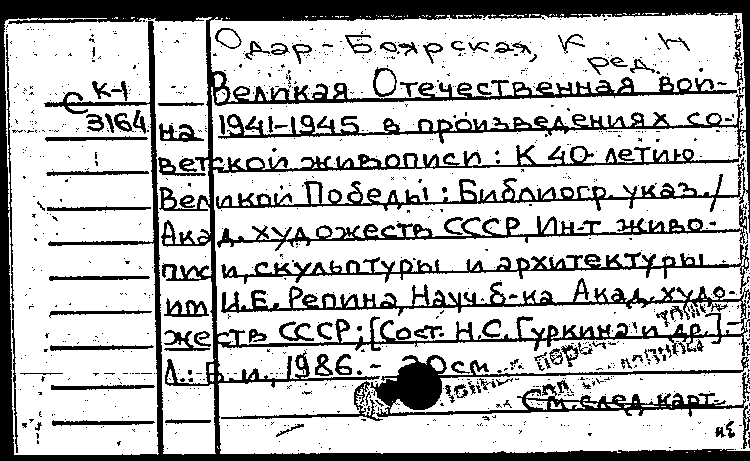 Одар-Боярская, К. Н
ред.
Великая Отечественная вой-
С К-1
3164
на 1941-1945 в произведениях со-
ветской живописи : К 40-летию
Великой Победы : Библиогр. указ. /
Акад. художеств СССР, Ин-т живо-
писи, скульптуры и архитектуры
им. И.Е. Репина, Науч. б-ка Акад. худо-
жеств СССР; [Сост. Н.С. Гуркина и др.].-
Л.: Б. и., 1986. - 20см.
См. след. карт.